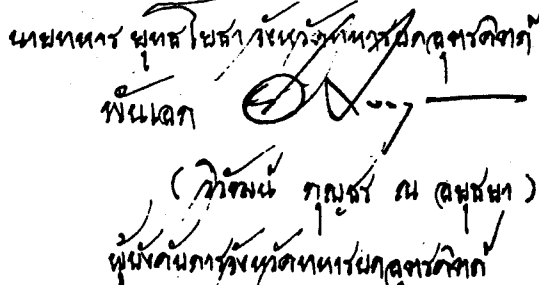 นายทหาร ยุทธโยธา จังหวัดทหารบกอุตรดิตถ์
พันเอก
( วิวัฒน์ กุญชร ณ อยุธยา )
ผู้บังคับการจังหวัดทหารบกอุตรดิตถ์